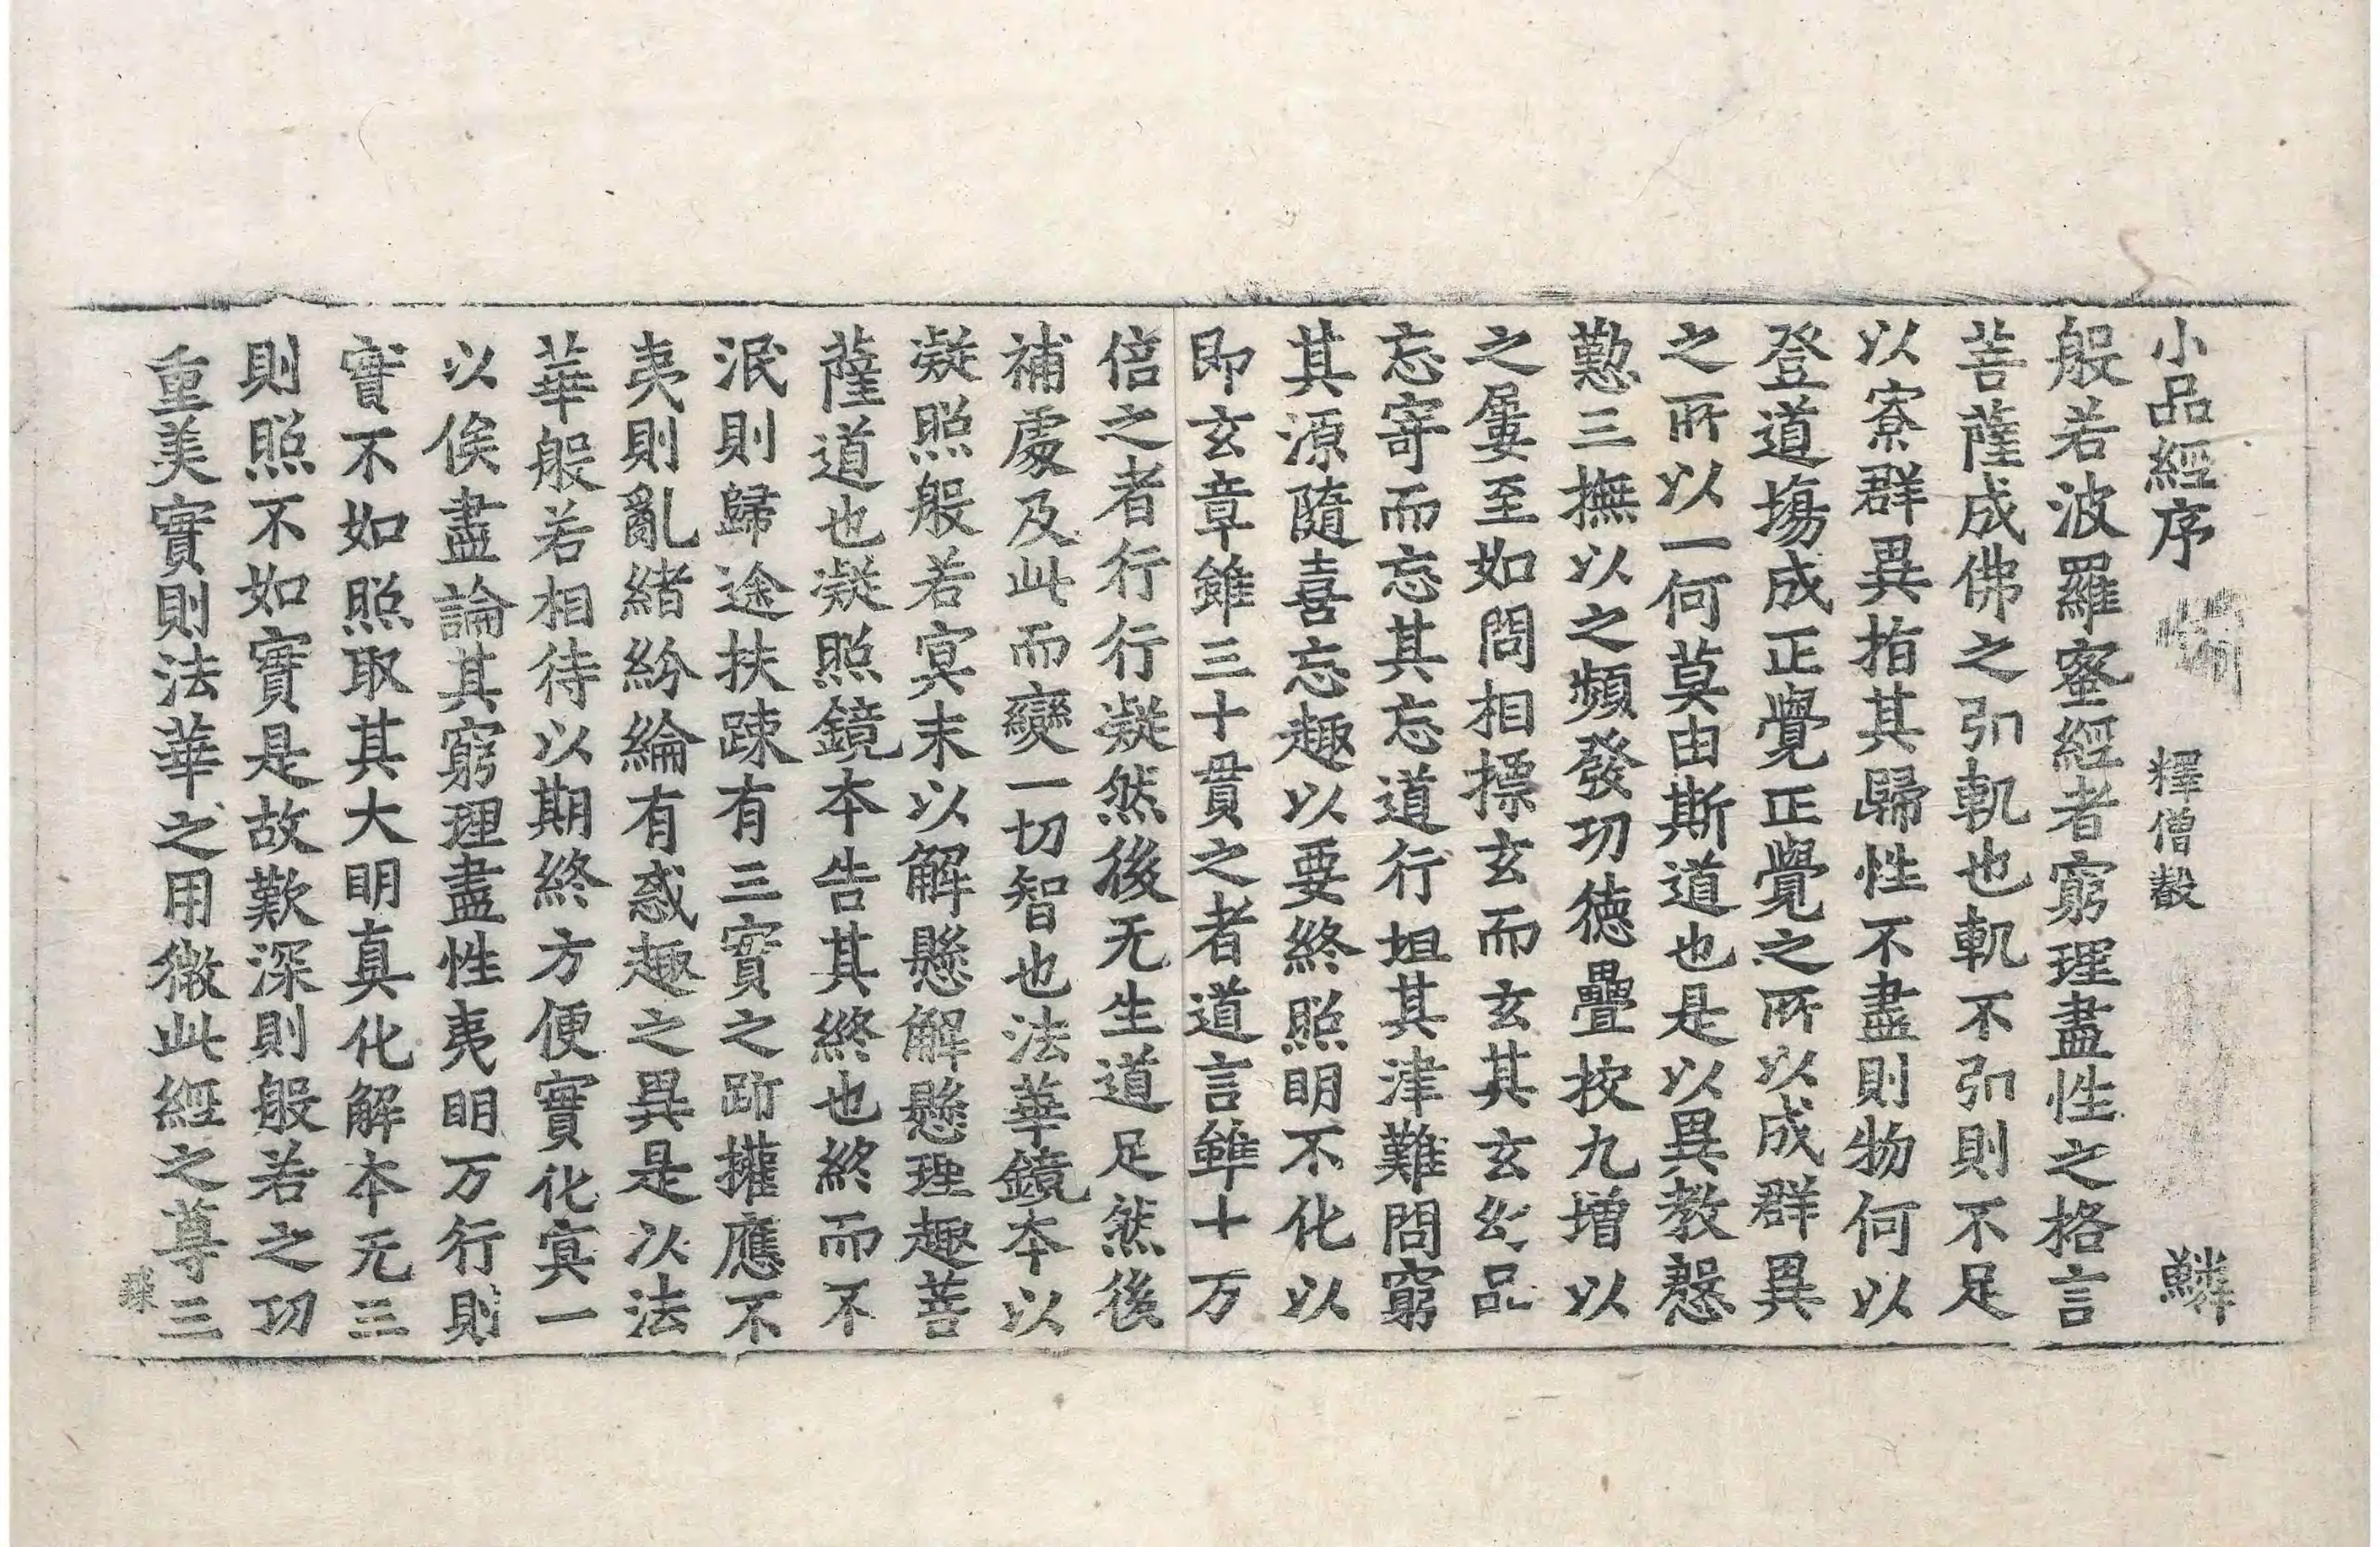 小品經序 釋僧叡 鱗
般若波羅蜜經者窮理盡性之格言
菩薩成佛之引軌也軌不引則不足
以寮群異指其歸性不盡則物何以
登道塲成正覺正覺之所以成群異
之所以一何莫由斯道也是以異教慇
懃三撫以之頻發功徳疊挍九增以
之屢至如問相摽玄而玄其玄幺品
忘寄而忘其忘道行坦其津難問窮
其源隨喜忘趣以要終照明不化以
即玄章雖三十貫之者道言雖十万
倍之者行行凝然後无生道足然後
補處及此而變一切智也法華鏡本以
凝照般若冥末以解懸解懸理趣菩
薩道也凝照鏡本告其終也終而不
泯則歸途扶疎有三實之跡攉應不
夷則亂緒紛綸有惑趣之異是以法
華般若相待以期終方便實化冥一
以俟盡論其窮理盡性夷明万行則
實不如照取其大明真化解本无三
則照不如實是故歎深則般若之功
重美實則法華之用微此經之尊三